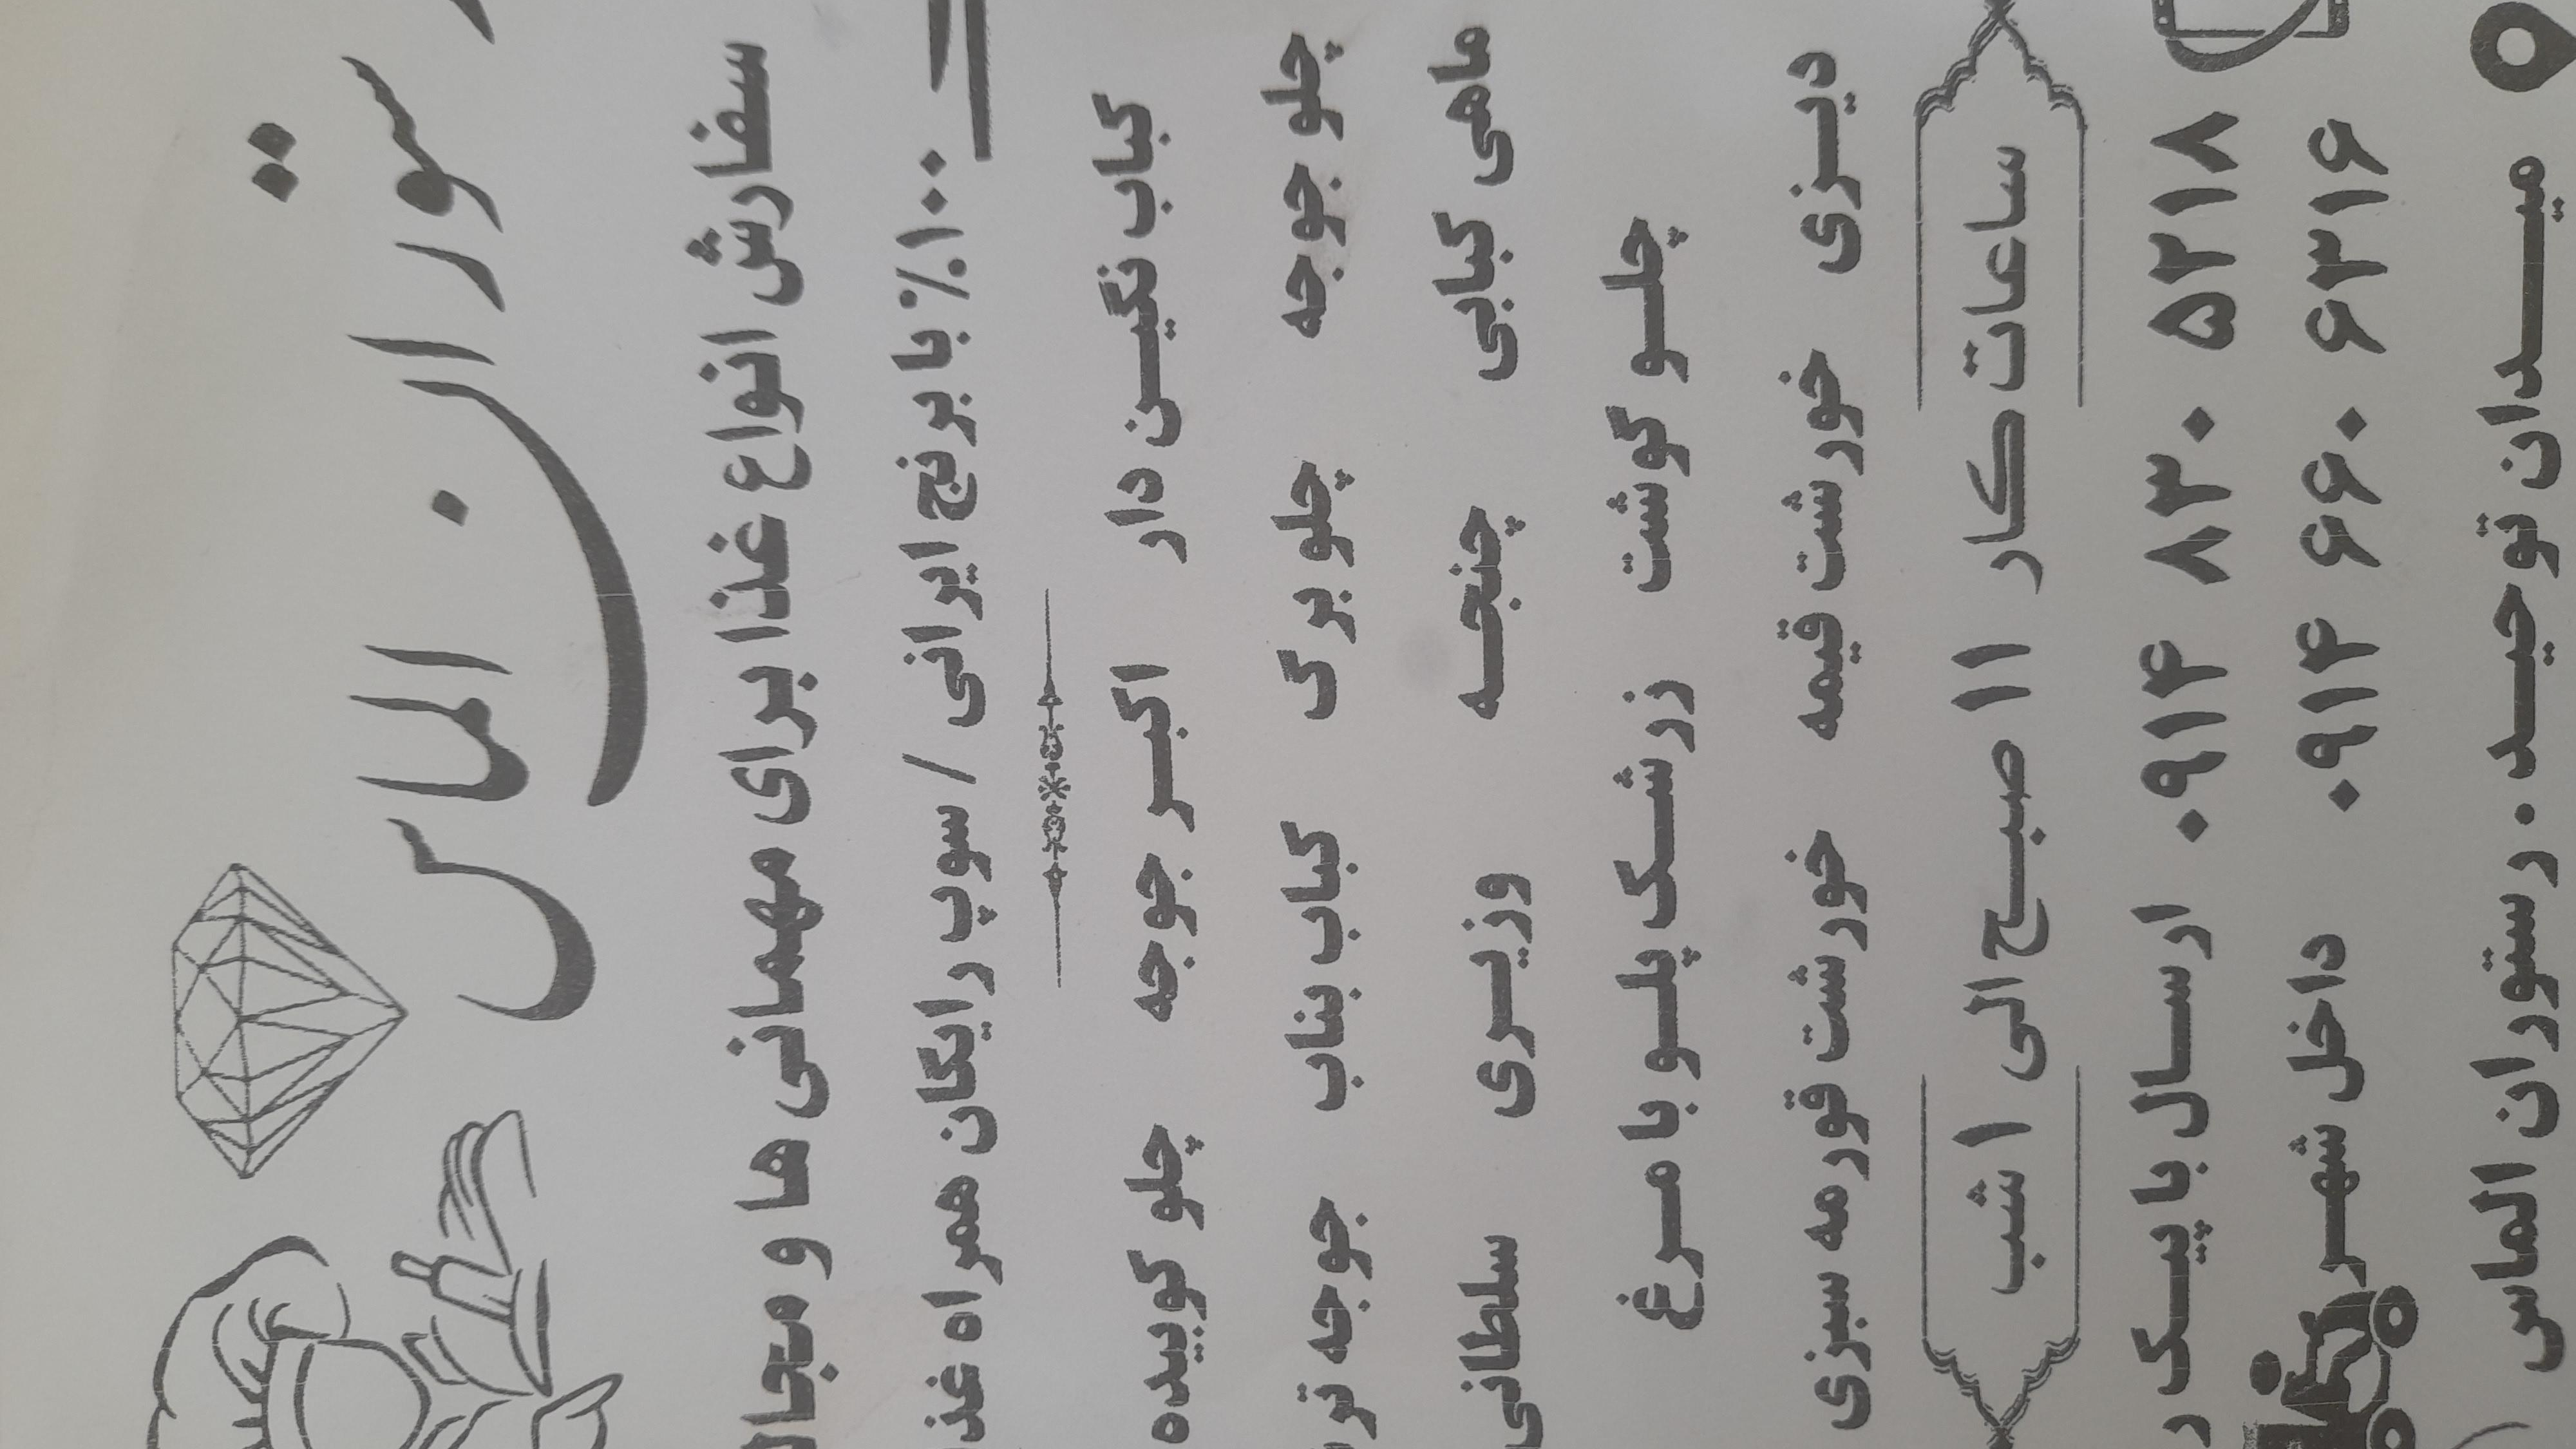 ستوران الماس
سفارش انواع غذا برای مهمانی ها و
۱۰۰٪ با برنج ایرانی / سوپ رایگان همراه
کباب نگین دار اکبر جوجه چلو کوبیده
چلو جوجه چلو برگ کباب بناب جوجه
ماهی کبابی چنجه وزیری سلطانی
چلو گوشت زرشک پلو با مرغ
دیزی خورشت قیمه خورشت قورمه سبزی
ساعات کار ۱۱ صبح الی ۱ شب
۰۹۱۴ ۸۳۰ ۵۲۱۸ ارسال با پیک
۰۹۱۴ ۶۶۰ ۶۳۱۶ داخل شهر رایگان
میدان توحید . رستوران الماس